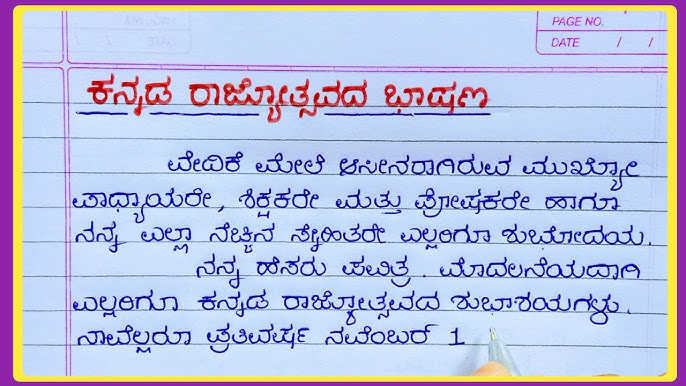 PAGE NO.
DATE / /
ಕನ್ನಡ ರಾಜ್ಯೋತ್ಸವದ ಭಾಷಣ
ವೇದಿಕೆ ಮೇಲೆ ಆಸೀನರಾಗಿರುವ ಮುಖ್ಯೋ
ಪಾಧ್ಯಾಯರೇ, ಶಿಕ್ಷಕರೇ ಮತ್ತು ಪೋಷಕರೇ ಹಾಗೂ
ನನ್ನ ಎಲ್ಲಾ ನೆಚ್ಚಿನ ಸ್ನೇಹಿತರೇ ಎಲ್ಲರಿಗೂ ಶುಭೋದಯ.
ನನ್ನ ಹೆಸರು ಪವಿತ್ರ. ಮೊದಲನೆಯದಾಗಿ
ಎಲ್ಲರಿಗೂ ಕನ್ನಡ ರಾಜ್ಯೋತ್ಸವದ ಶುಭಾಶಯಗಳು.
ನಾವೆಲ್ಲರೂ ಪ್ರತಿವರ್ಷ ನವೆಂಬರ್ 1